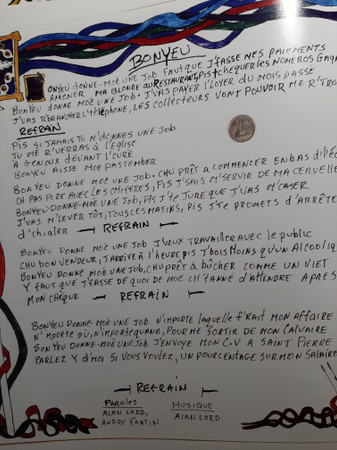 BONYEU
BONYEU DONNE-MOÉ UNE JOB FAUT QUE J'FASSE MES PAIEMENTS
AMENER MA BLONDE AU RESTAURANT, PIS TCHEQUER LES NUMÉROS GAGN
BONYEU DONNE MOÉ UNE JOB. J'VAS PAYER L'LOYER DU MOIS PASSÉ
J'VAS R'BRANCHER L'TÉLÉPHONE, LES COLLECTEURS VONT POUVOIR ME R'TRO
REFRAIN
PIS SI JAMAIS TU M'DONNES UNE JOB
TU ME R'VERRAS À L'ÉGLISE
À GENOUX DEVANT L'CURÉ
BONYEU AISSE MOÉ PAS TOMBER
BONYEU DONNE-MOÉ UNE JOB. CHU PRÊT À COMMENCER EN BAS D'L'ÉC
CH'A PAS PIRE AVEC LES CHIFFRES, PIS J'SAIS M'SERVIR DE MA CERVELLE
BONYEU-DONNE-MOÉ UNE JOB, PIS J'TE JURE QUE J'VAS M'CASER
J'VAS M'LEVER TÔT, TOUS LES MATINS, PIS J'TE PROMETS D'ARRÊTE
d'chialer REFRAIN
BONYEU DONNE MOÉ UNE JOB J'VEUX TRAVAILLER AVEC LE PUBLIC
CHU BON VENDEUR, J'ARRIVE À L'HEURE PIS J'BOIS MOINS QU'UN ALCOOLIQ
BONYEU DONNE MOÉ UNE JOB, CHU PRÊT À BÛCHER COMME UN VIET
Y FAUT QUE J'FASSE DE QUOI DE MOÉ CH'TANNÉ D'ATTENDRE APRÈS
MON CHÈQUE REFRAIN
BONYEU DONNE-MOÉ UNE JOB N'IMPORTE laquelle F'RAIT MON AFFAIRE
N'IMPORTE OÙ, N'IMPORTE QUAND, POUR ME SORTIR DE MON CALVAIRE
BONYEU DONNE-MOÉ UNE JOB J'ENVOYE MON C.V À SAINT PIERRE
PARLEZ Y D'MOI SI VOUS VOULEZ, UN POURCENTAGE SUR MON SALAIRE
REFRAIN
PAROLES MUSIQUE
ALAN LORD, ALAN LORD
ANDRÉ FORTIN